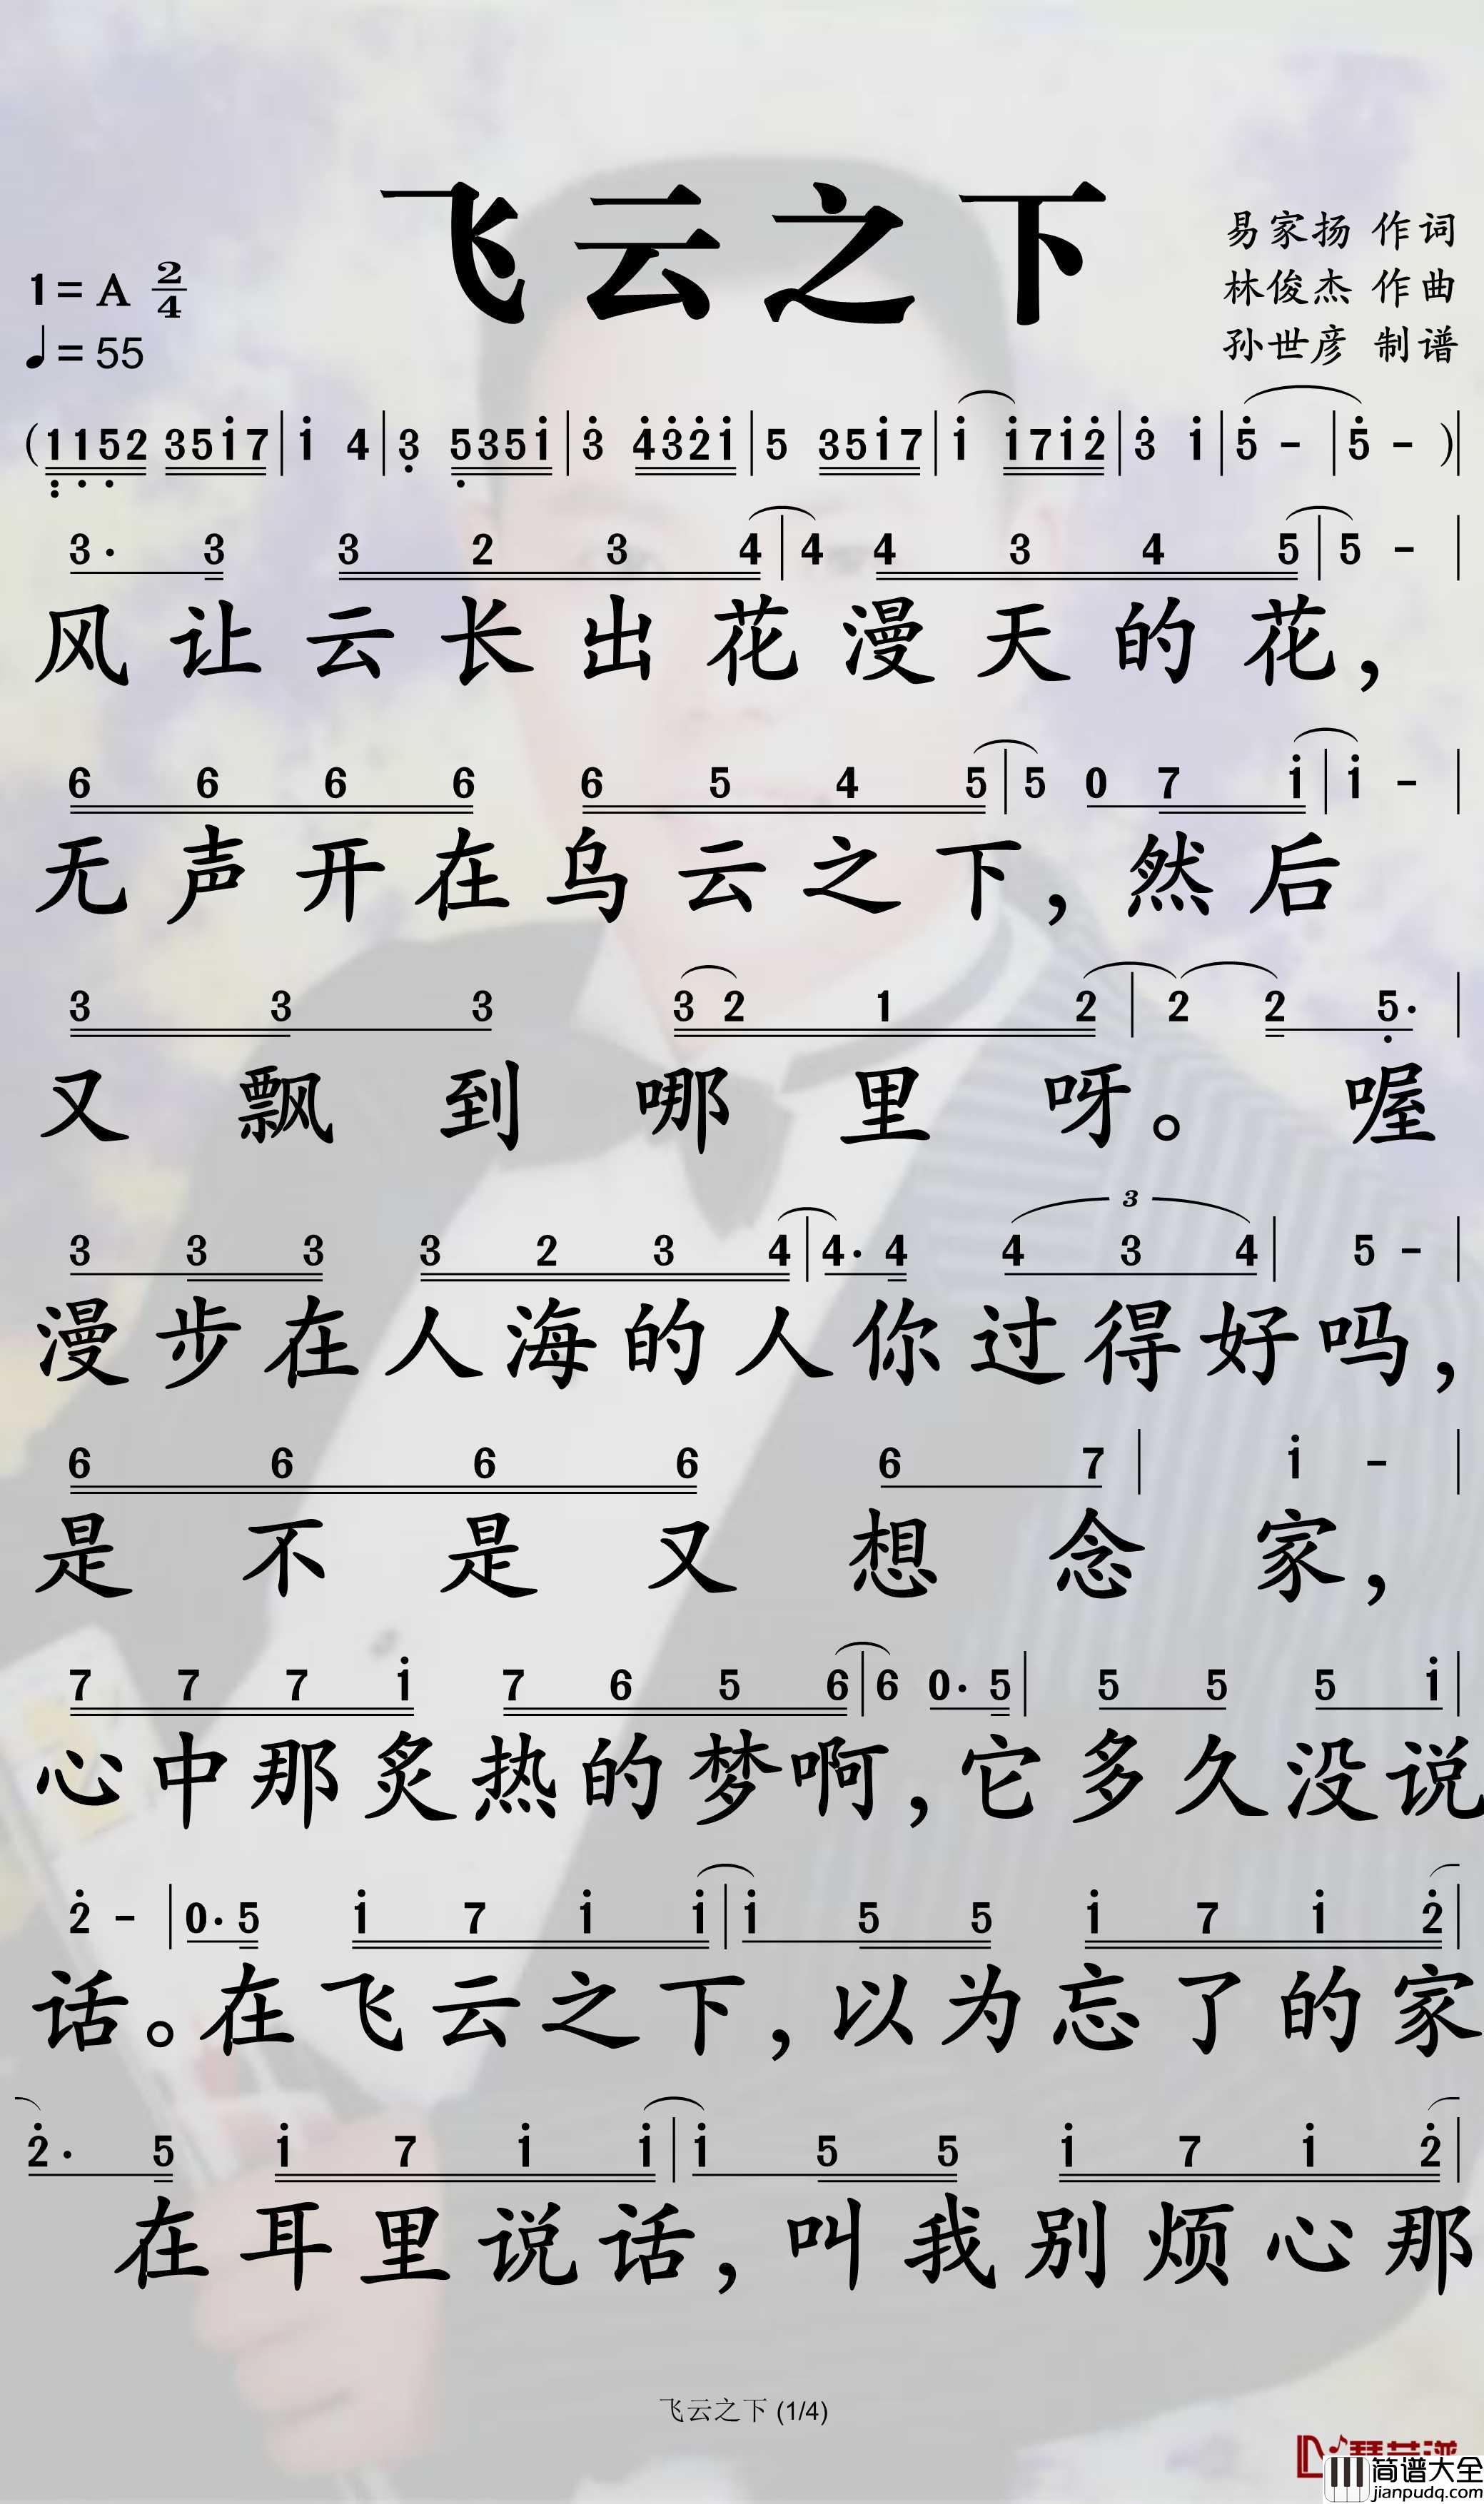 飞云之下
易家扬 作词
林俊杰 作曲
孙世彦 制谱
1=A 2/4
♩=55
(1152 3517|i 4|3 535i|3 4321|5 35i7|i i7i2|3 i|5 -|5 -)|
3· 3 3 2 3 4|4 4 3 4 5|5 -|
风让云长出花漫天的花，
6 6 6 6 6 5 4 5|5 0 7 i|i -|
无声开在乌云之下，然后
3 3 3 3 2 1 2|2 2 5·|
又飘到哪里呀。喔
3 3 3 3 2 3 4|4· 4 3 4 3 4|5 -|
漫步在人海的人你过得好吗，
6 6 6 6 6 7|i -|
是不是又想念家，
7 7 7 i 7 6 5 6|6 0· 5|5 5 5 i|
心中那炙热的梦啊，它多久没说
2 -|0· 5 i 7 i i|i 5 5 i 7 i 2|
话。在飞云之下，以为忘了的家
2· 5 i 7 i i|i 5 5 i 7 i 2|
在耳里说话，叫我别烦心那
飞云之下 (1/4)
简谱大全
jianpudq.com